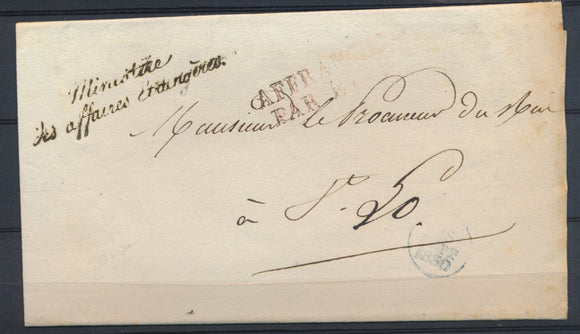 Ministère
des affaires étrangères.
AFFRANCHI
PAR
Monsieur le Procureur du Roi
à St. Lo.
1830